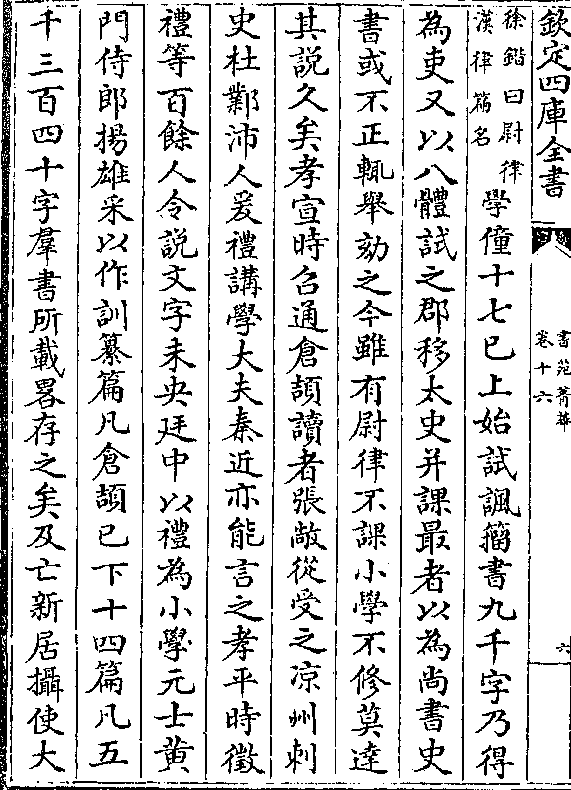 欽定四庫全書
書苑菁華
卷十六
六
徐鍇曰尉律
漢律篇名
學僮十七已上始試諷籀書九千字乃得
為吏又以八體試之郡移太史并課最者以為尚書史
書或不正輒舉劾之今雖有尉律不課小學不修莫達
其說久矣孝宣時召通倉頡讀者張敞從受之涼州刺
史杜鄴沛人爰禮講學大夫秦近亦能言之孝平時徵
禮等百餘人令說文字未央廷中以禮為小學元士黄
門侍郎揚雄采以作訓纂篇凡倉頡已下十四篇凡五
千三百四十字羣書所載畧存之矣及亡新居攝使大